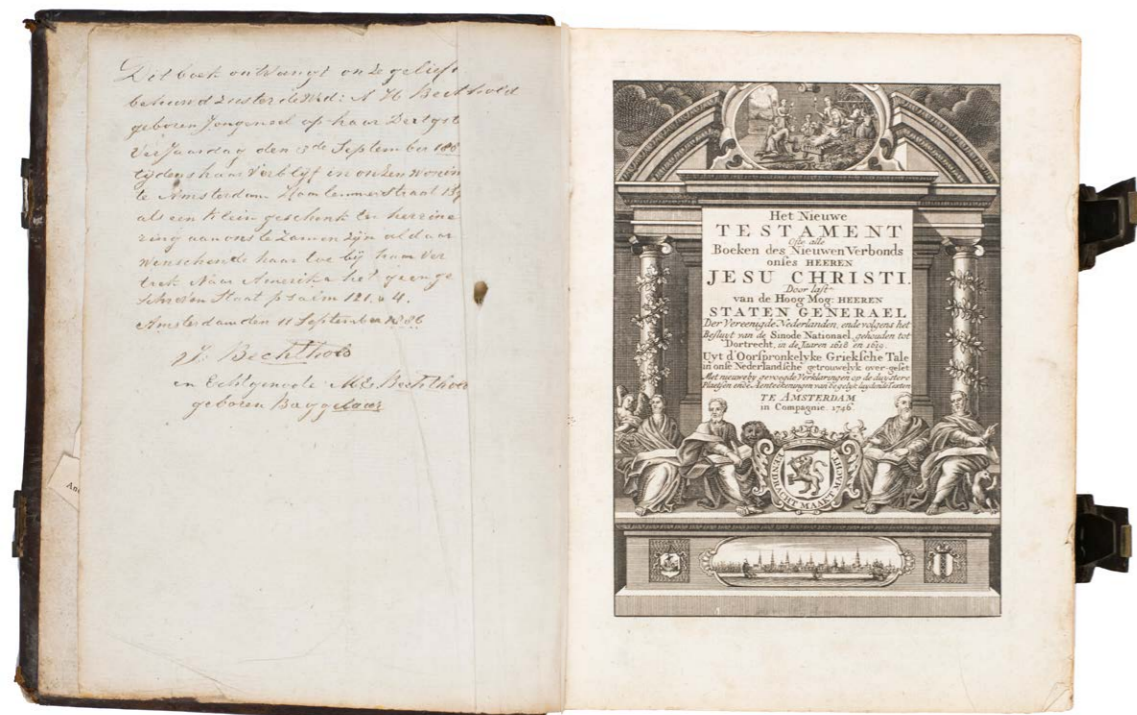 Dit boek ontvangt onze geliefde
behuwd zuster de Wed: A H Bechthold
geboren Jongeneel op haar Dertigste
Verjaardag den 3de September 188
tijdens haar Verblijf in onzen
te Amsterdam Haarlemmerstraat 139
als een klein geschenk ter herinne
ring aan ons te zamen zijn aldaar
Wenschende haar toe bij haar Ver
trek Naar Amerika het geen ge
schreven Staat psalm 121. v 4.
Amsterdam den 11 September 1886
J. Bechthold
en Echtgenoote M.E. Bechthold
geboren
Het Nieuwe
TESTAMENT
Ofte alle
Boeken des Nieuwen Verbonds
onses HEEREN
JESU CHRISTI.
Door last
van de Hoog Mog: HEEREN
STATEN GENERAEL
Der Vereenigde Nederlanden, ende volgens het
Besluyt van de Sinode Nationael, gehouden tot
Dortrecht, in de Jaaren 1618 en 1619.
Uyt d'Oorspronkelyke Grieksche Tale
in onse Nederlandsche getrouwelyk over-geset
Met nieuwe by gevoegde Verklaringen op de duystere
Plaatsen ende Aenteekeningen van de gelyk luydende Texten
TE AMSTERDAM
in Compagnie 1746.
EENDRACHT MAAKT MAGT